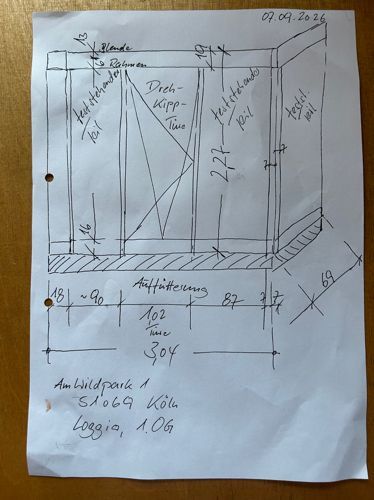 07.09.2026
13
Blende
6
Rahmen
19
feststehender
Teil
Dreh-
Kipp-
Türe
feststehende
Teil
festst.
Teil
2,27
7
7
16
Auffütterung
18
~90
102
Türe
87
7
7
69
3,04
Am Wildpark 1
51069 Köln
Loggia, 1.OG